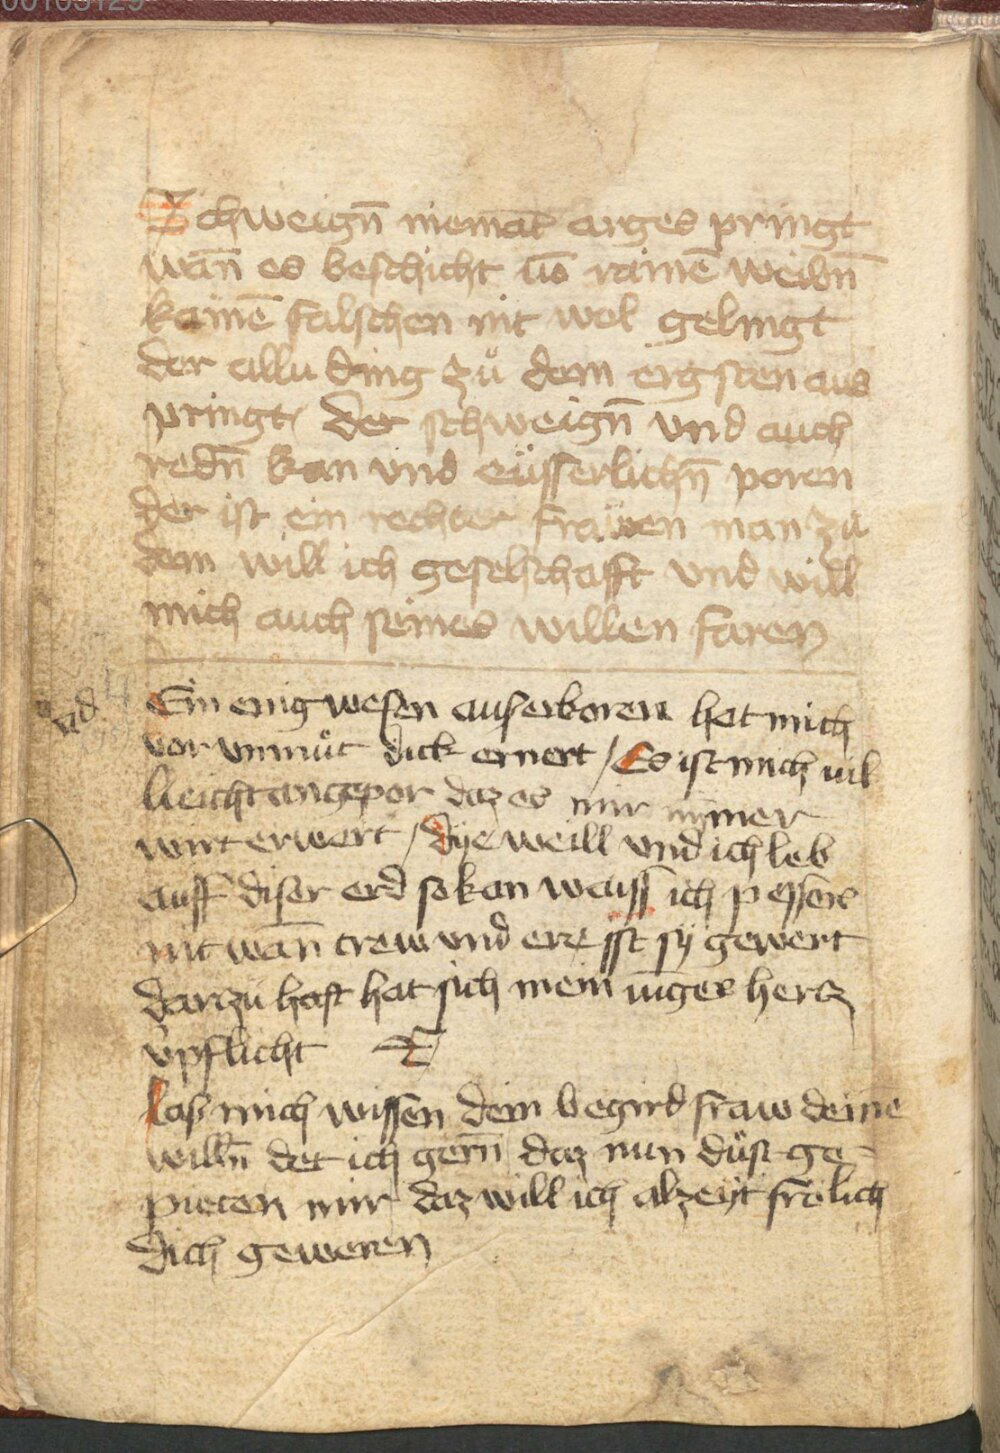 00105129
Schweign̄ niemat̄ arges pringt
wan̄ es beschicht vō rainē weibn̄
kainē falschen nit wol gelingt
der allu ding zů dem ergsten aus
pringt / der schweign̄ vnd auch
redn̄ kan vnd eüsserlichn̄ poren
der ist ein rechter frawen man zü
dem will ich geselschafft vnd will
mich auch seines willen faren
Ein enig wesen auserkoren hat mich
vor vnmůt dick ernert / Es ist mich vil
lieicht angepor daz es mir nymer
wirt erwert / Dye weill vnd ich leb
auff diser erd so kan waiss ich pessers
nit wan̄ trew vnd ere sst sy gewert
darzu hast hat sich mein iūges hercz
vpflicht
Las mich wissen dein begird fraw deinē
willn̄ det ich gern̄ daz nun důst ge-
pieten mir daz will ich alzeyt frölich
dich geweren